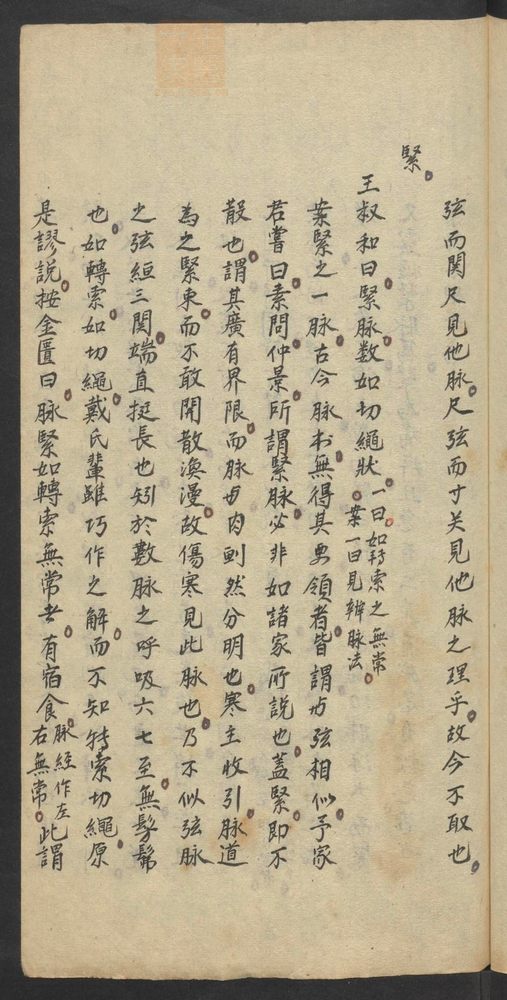 弦而関尺見他脉尺弦而寸关見他脉之理乎故今不取也
緊
王叔和曰緊脉数如切繩狀一曰如轉索之無常
案一曰見辨脉法
案緊之一脉古今脉书無得其要領者皆謂与弦相似予家
君嘗曰素問仲景所謂緊脉必非如諸家所説也蓋緊即不
散也謂其廣有界限而脉与肉劃然分明也寒主收引脉道
為之緊束而不敢開散渙漫故傷寒見此脉也乃不似弦脉
之弦絙三関端直挺長也矧於數脉之呼吸六七至無髣髴
也如轉索如切繩戴氏輩雖巧作之解而不知轉索切繩原
是謬説按金匱曰脉緊如轉索無常者有宿食脉經作左
右無常此謂